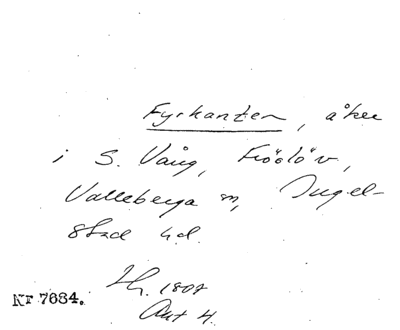 Fyrkanten, åker
i S. Vång, Fröslöv,
Valleberga sn, Ingel-
stad hd.
Lh. 1807
Akt 4.
Kr 7684.